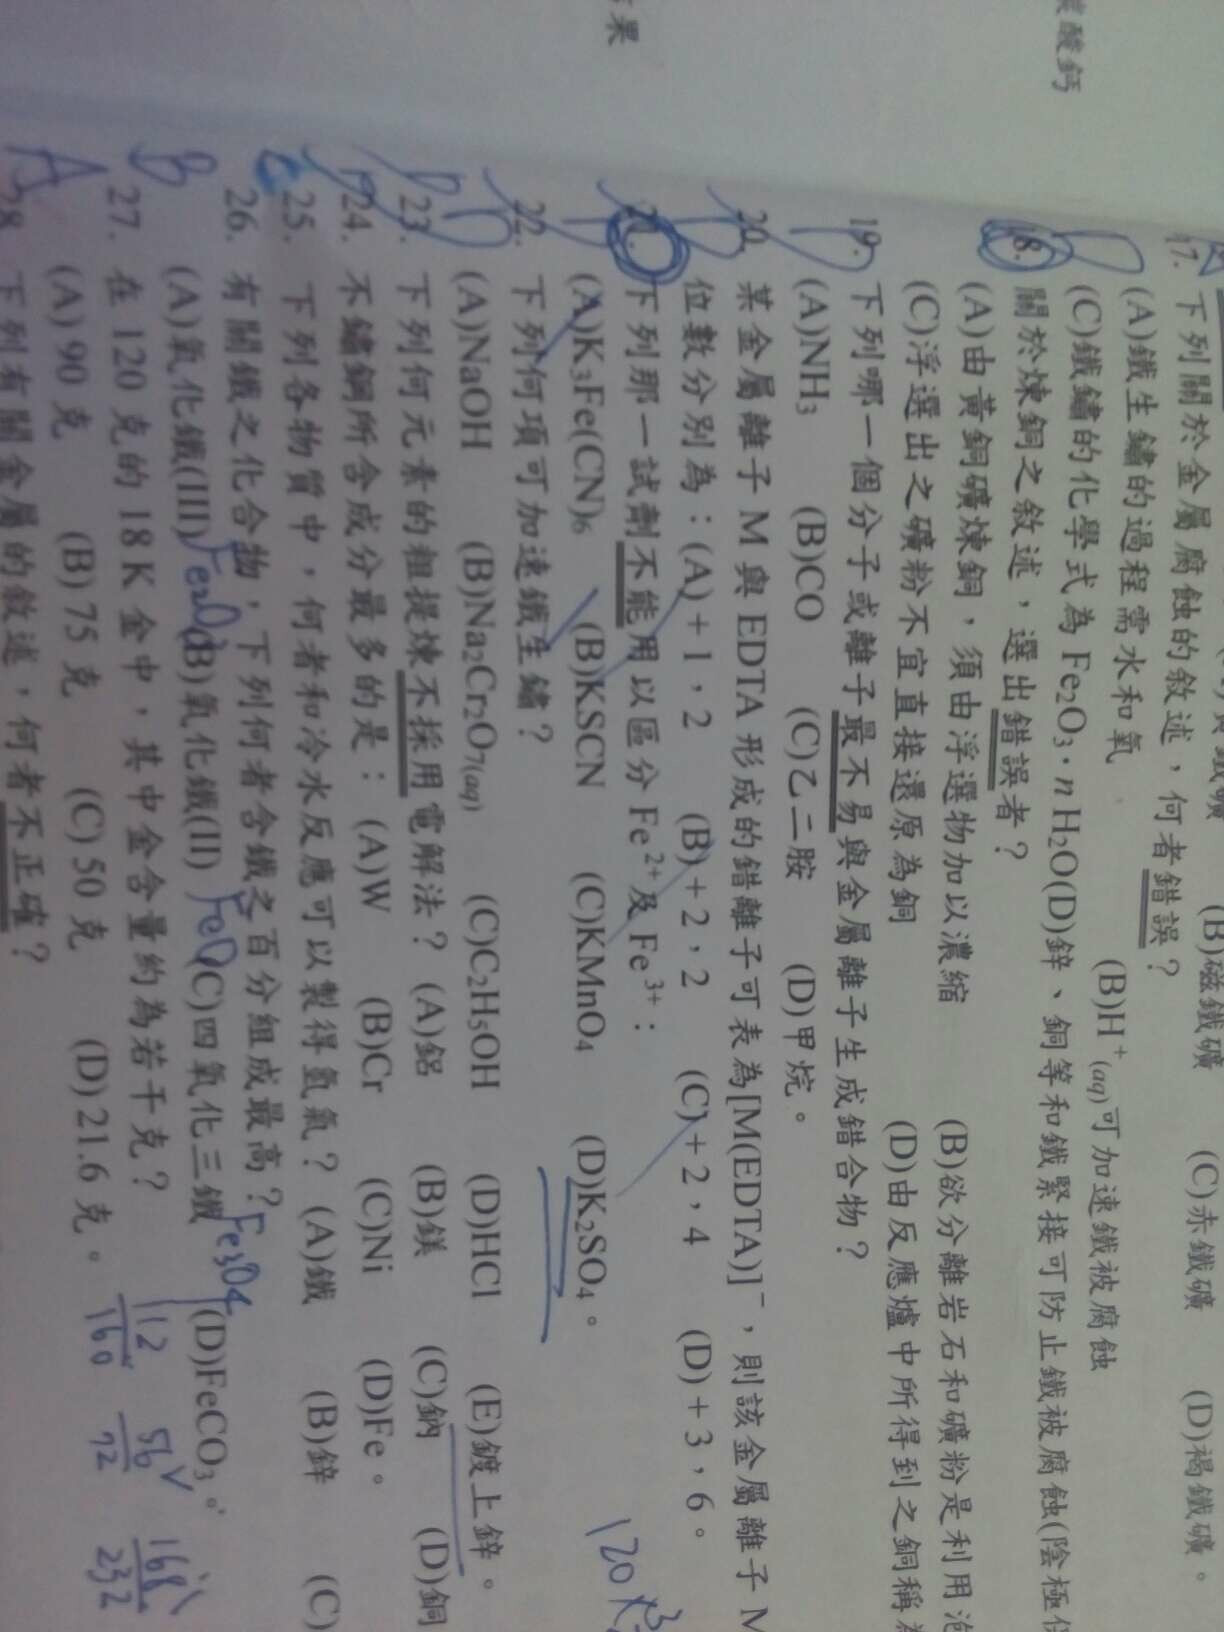 酸鈣
果
(B)磁鐵礦 (C)赤鐵礦 (D)褐鐵礦。
17. 下列關於金屬腐蝕的敘述，何者錯誤？
(A)鐵生鏽的過程需水和氧 (B)H⁺(aq)可加速鐵被腐蝕
(C)鐵鏽的化學式為 Fe₂O₃·nH₂O(D)鋅、銅等和鐵緊接可防止鐵被腐蝕(陰極
18. 關於煉銅之敘述，選出錯誤者？
(A)由黃銅礦煉銅，須由浮選物加以濃縮 (B)欲分離岩石和礦粉是利用泡
(C)浮選出之礦粉不宜直接還原為銅 (D)由反應爐中所得到之銅稱
19. 下列哪一個分子或離子最不易與金屬離子生成錯合物？
(A)NH₃ (B)CO (C)乙二胺 (D)甲烷。
20. 某金屬離子 M 與 EDTA 形成的錯離子可表為[M(EDTA)]⁻，則該金屬離子 M
位數分別為：(A)+1，2 (B)+2，2 (C)+2，4 (D)+3，6。
21. 下列那一試劑不能用以區分 Fe²⁺及 Fe³⁺：
(A)K₃Fe(CN)₆ (B)KSCN (C)KMnO₄ (D)K₂SO₄。
120 x 3
22. 下列何項可加速鐵生鏽？
(A)NaOH (B)Na₂Cr₂O₇(aq) (C)C₂H₅OH (D)HCl (E)鍍上鋅。
23. 下列何元素的粗提煉不採用電解法？ (A)鋁 (B)鎂 (C)鈉 (D)銅
24. 不鏽鋼所含成分最多的是： (A)W (B)Cr (C)Ni (D)Fe。
25. 下列各物質中，何者和冷水反應可以製得氫氣？ (A)鐵 (B)鋅 (C)
C
26. 有關鐵之化合物，下列何者含鐵之百分組成最高？
B
(A)氧化鐵(III) Fe₂O₃ (B)氧化鐵(II) FeO (C)四氧化三鐵 Fe₃O₄ (D)FeCO₃。
112 56 168
160 72 232
27. 在 120 克的 18K 金中，其中金含量約為若干克？
A
(A) 90 克 (B) 75 克 (C) 50 克 (D) 21.6 克。
28. 下列有關金屬的敘述，何者不正確？